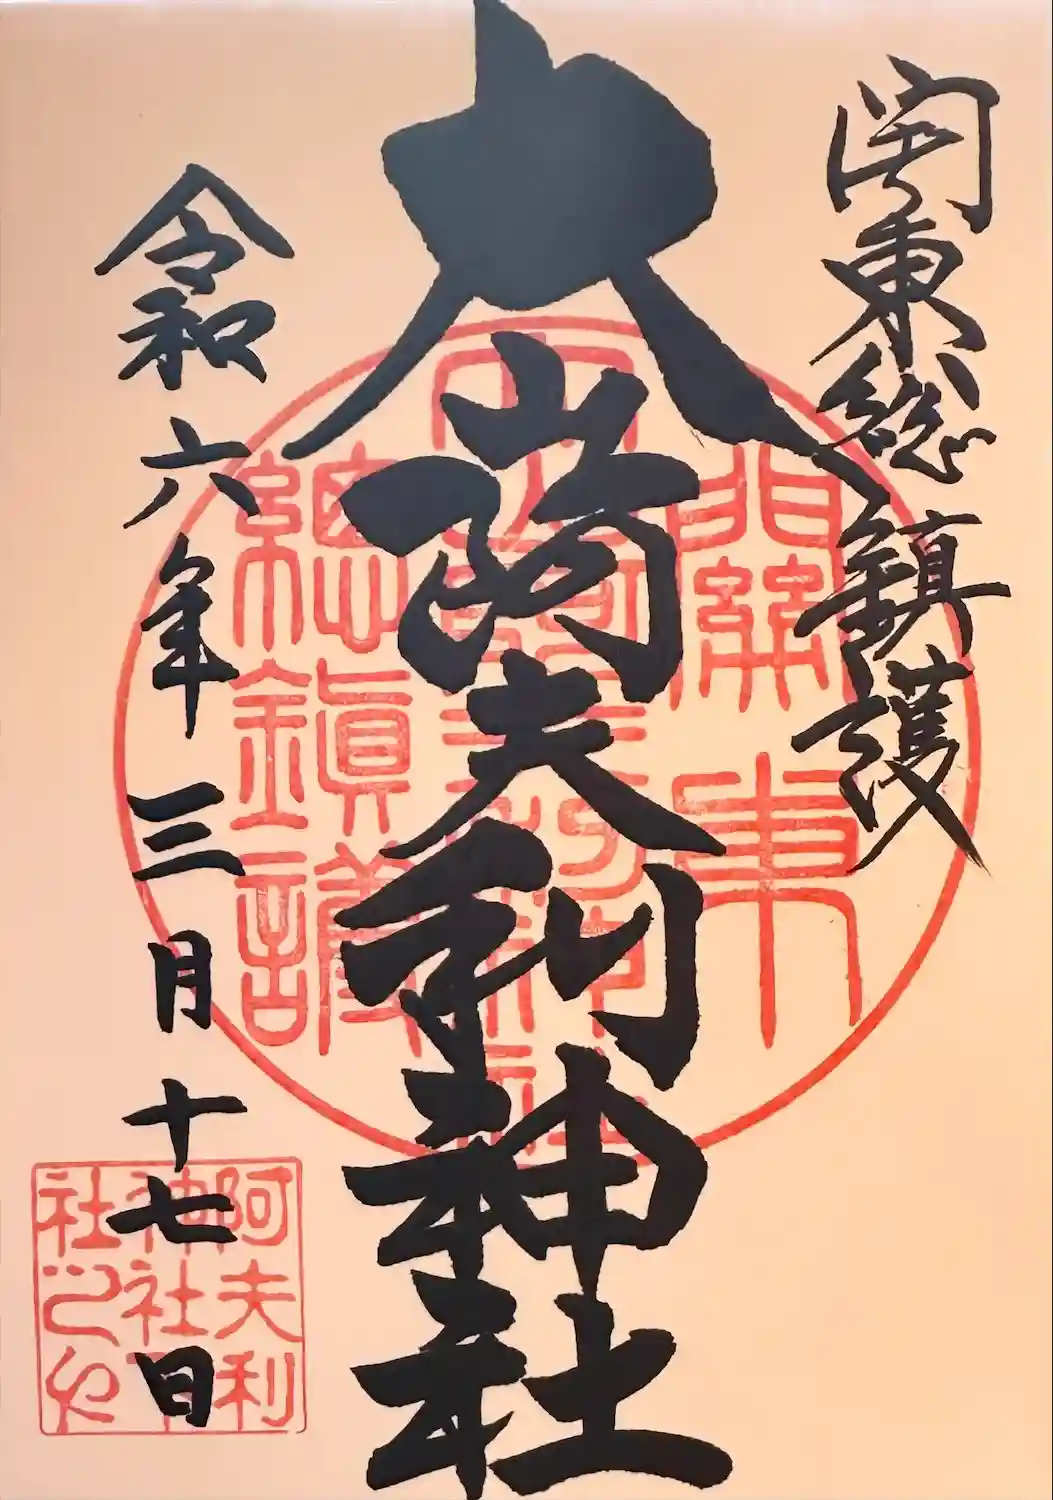 関東総鎮護
大山阿夫利神社
令和六年三月十七日
關東
總鎮護
阿夫利
神社下
社之也